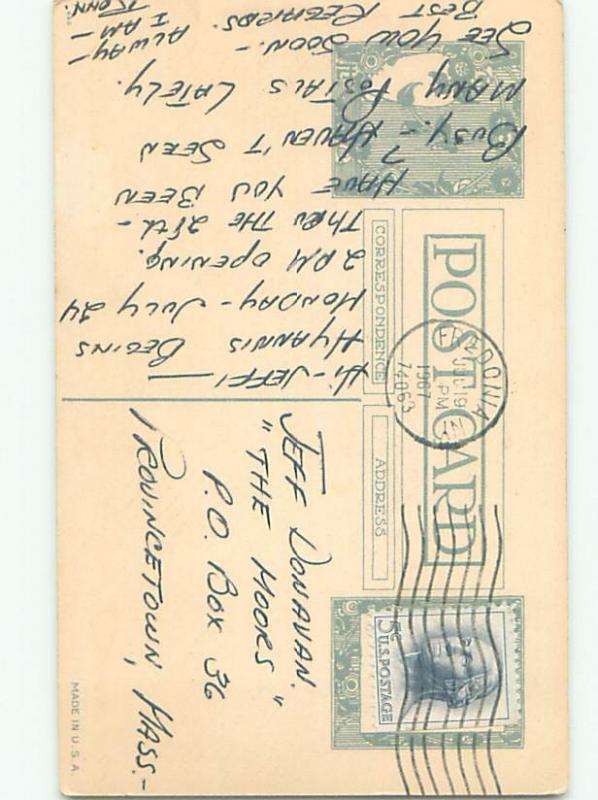 POST CARD
CORRESPONDENCE
ADDRESS
Hi-JEFF!—
HYANNIS BEGINS
MONDAY-JULY 24
2 PM OPENING.
THRU THE 28th-
HAVE YOU BEEN
BUSY.-? HAVEN'T SEEN
MANY POSTALS LATELY.
SEE YOU SOON.-
BEST REGARDS. ALWAY-
I AM-
RONN.
JEFF DONAVAN.
"THE MOORS"
P.O. BOX 36
PROVINCETOWN, MASS.-
FREDONIA
JUL 19
PM
1967
14063
5c
U.S. POSTAGE
MADE IN U.S.A.